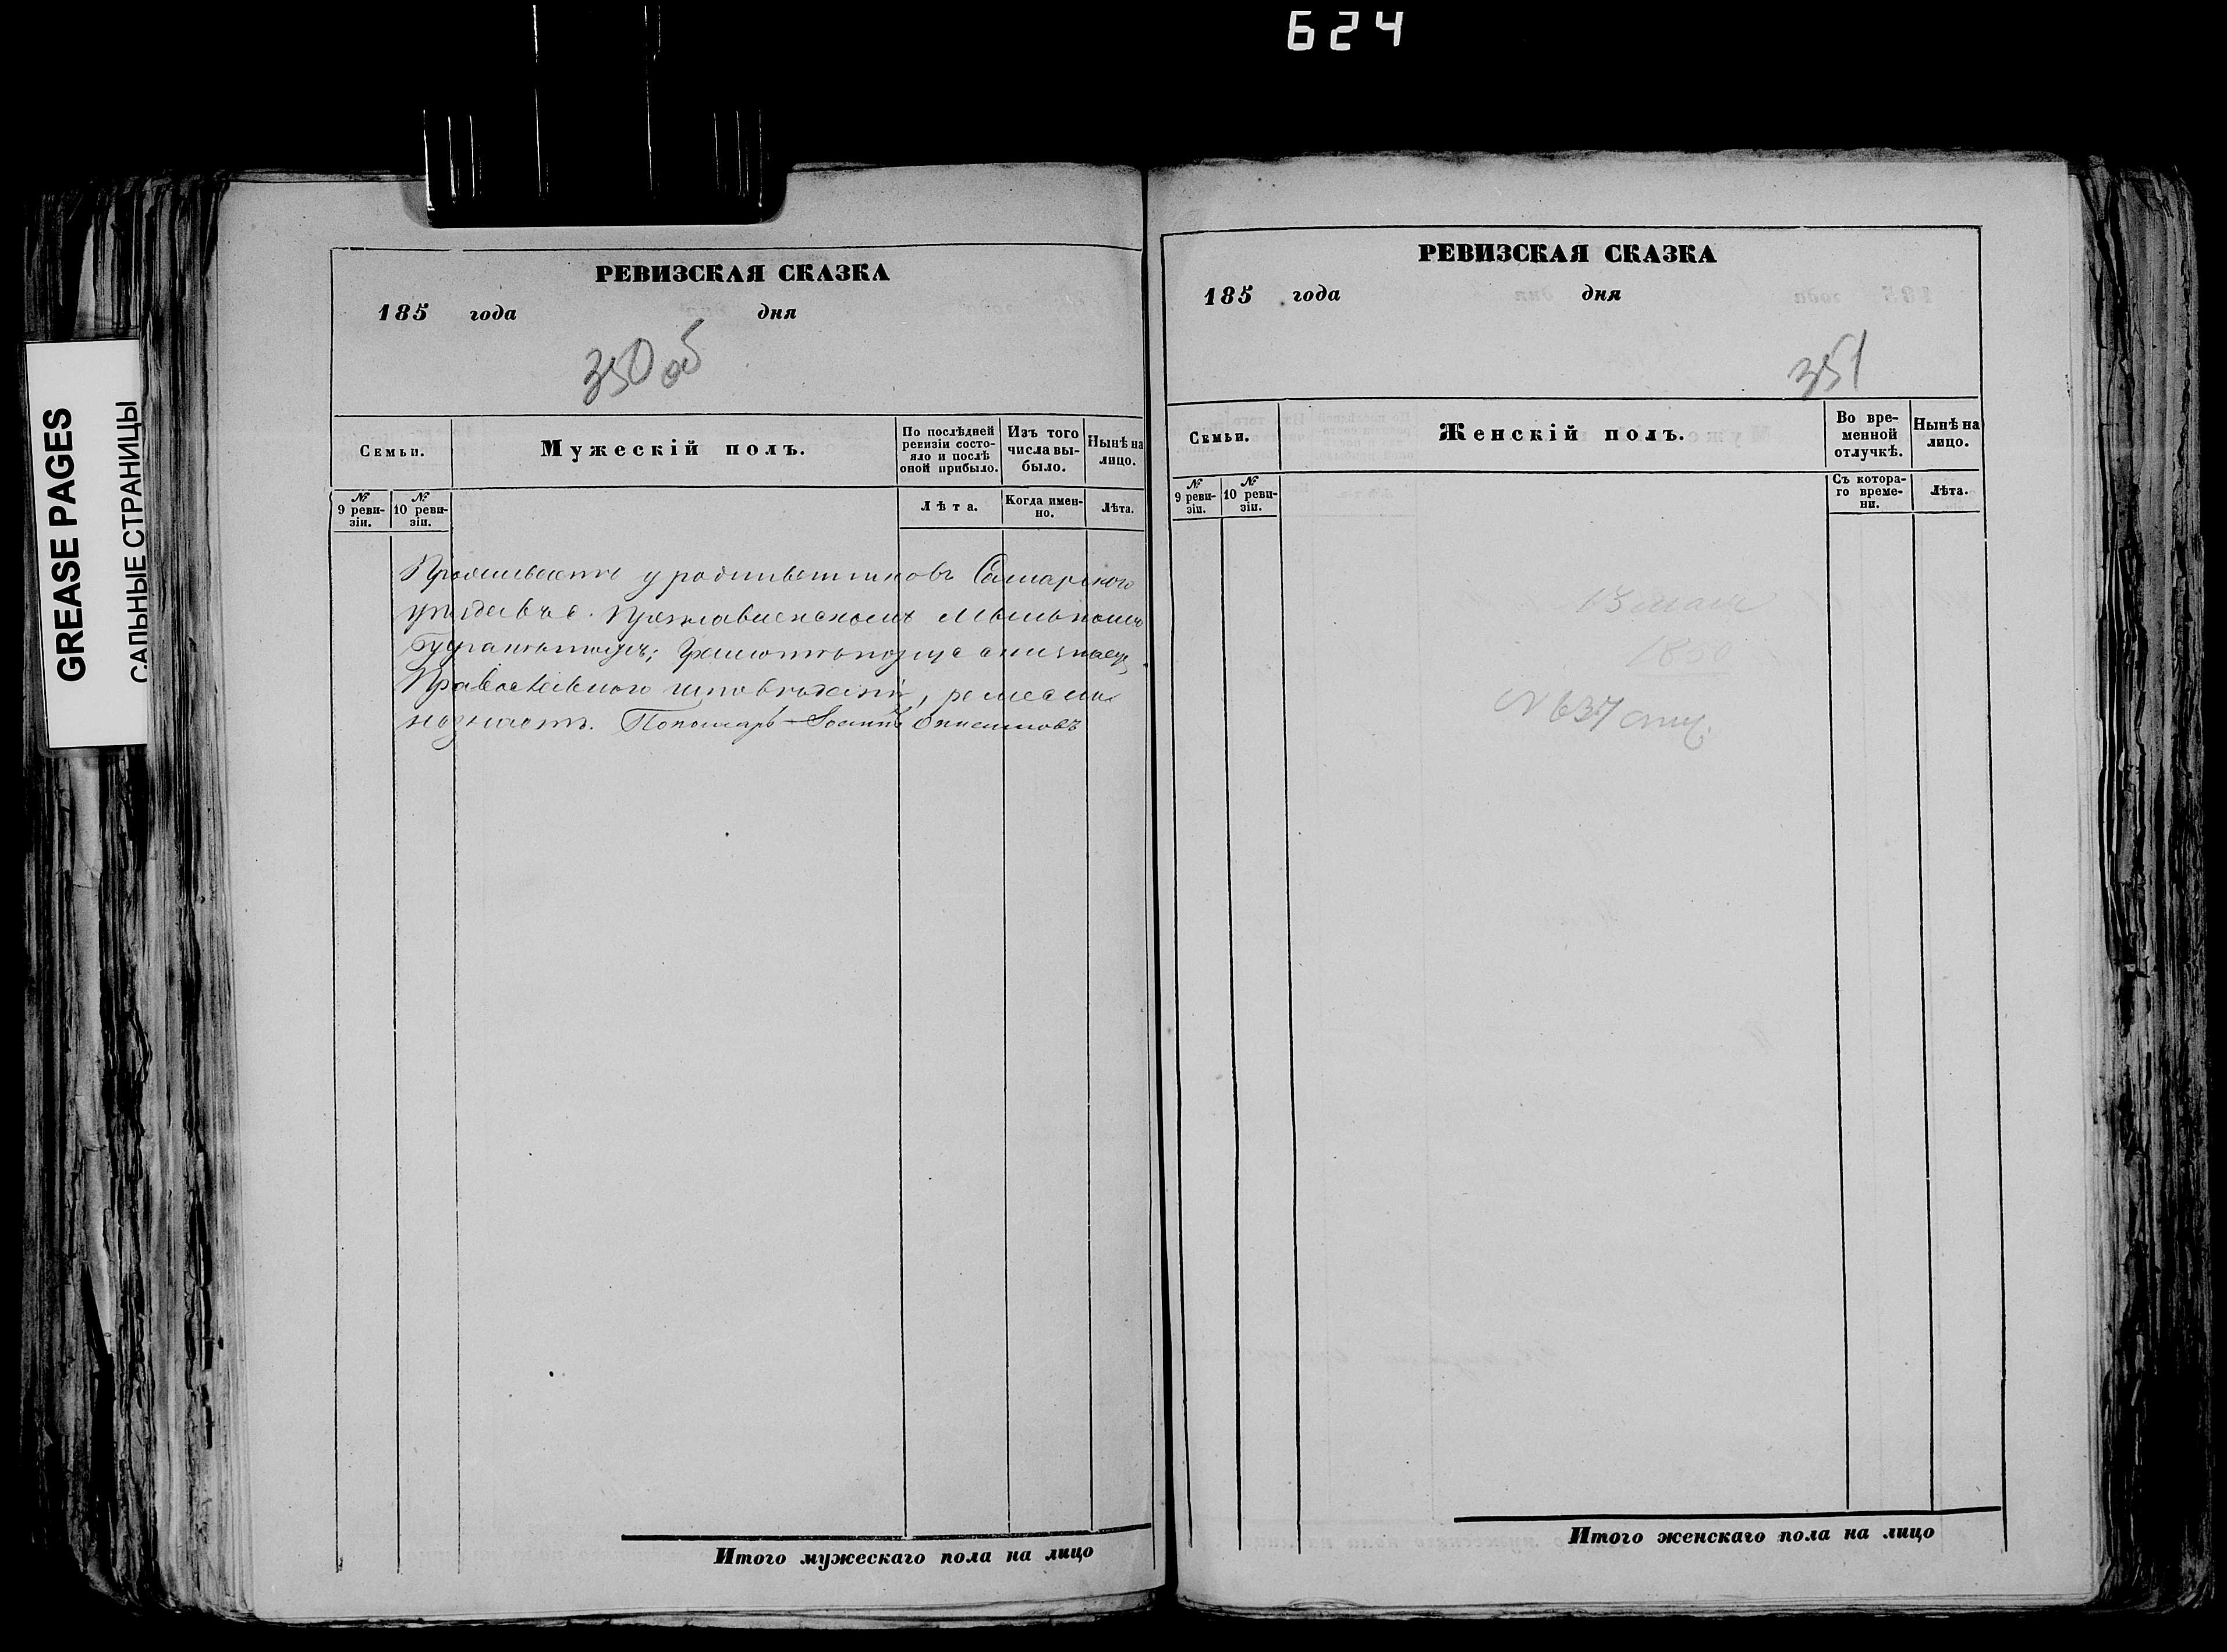 624
GREASE PAGES
САЛЬНЫЕ СТРАНИЦЫ
РЕВИЗСКАЯ СКАЗКА
185 года дня
350 об
Семьи.
Мужескiй полъ.
По послѣдней ревизiи состояло и послѣ оной прибыло.
Изъ того числа выбыло.
Нынѣ на лицо.
№ 9 ревизiи.
№ 10 ревизiи.
Лѣта.
Когда именно.
Лѣта.
Проживаетъ у родственниковъ Самарского
Православного исповѣданiя, ремесла
незнаетъ. Пономарь Іоаннъ
Итого мужескаго пола на лицо
РЕВИЗСКАЯ СКАЗКА
185 года дня
351
Семьи.
Женскiй полъ.
Во временной отлучкѣ.
Нынѣ на лицо.
№ 9 ревизiи.
№ 10 ревизiи.
Съ котораго времени.
Лѣта.
13 мая
1850
N 637
Итого женскаго пола на лицо